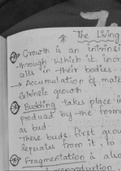 * The Living
Growth is an intrinsic
through which it incr
cells in their bodies.
→ Accumulation of mate
extrinsic growth.
Budding takes place i
produced by the forma
as bud.
These buds first grow
separates from it, to
Fragmentation is also
reproduction